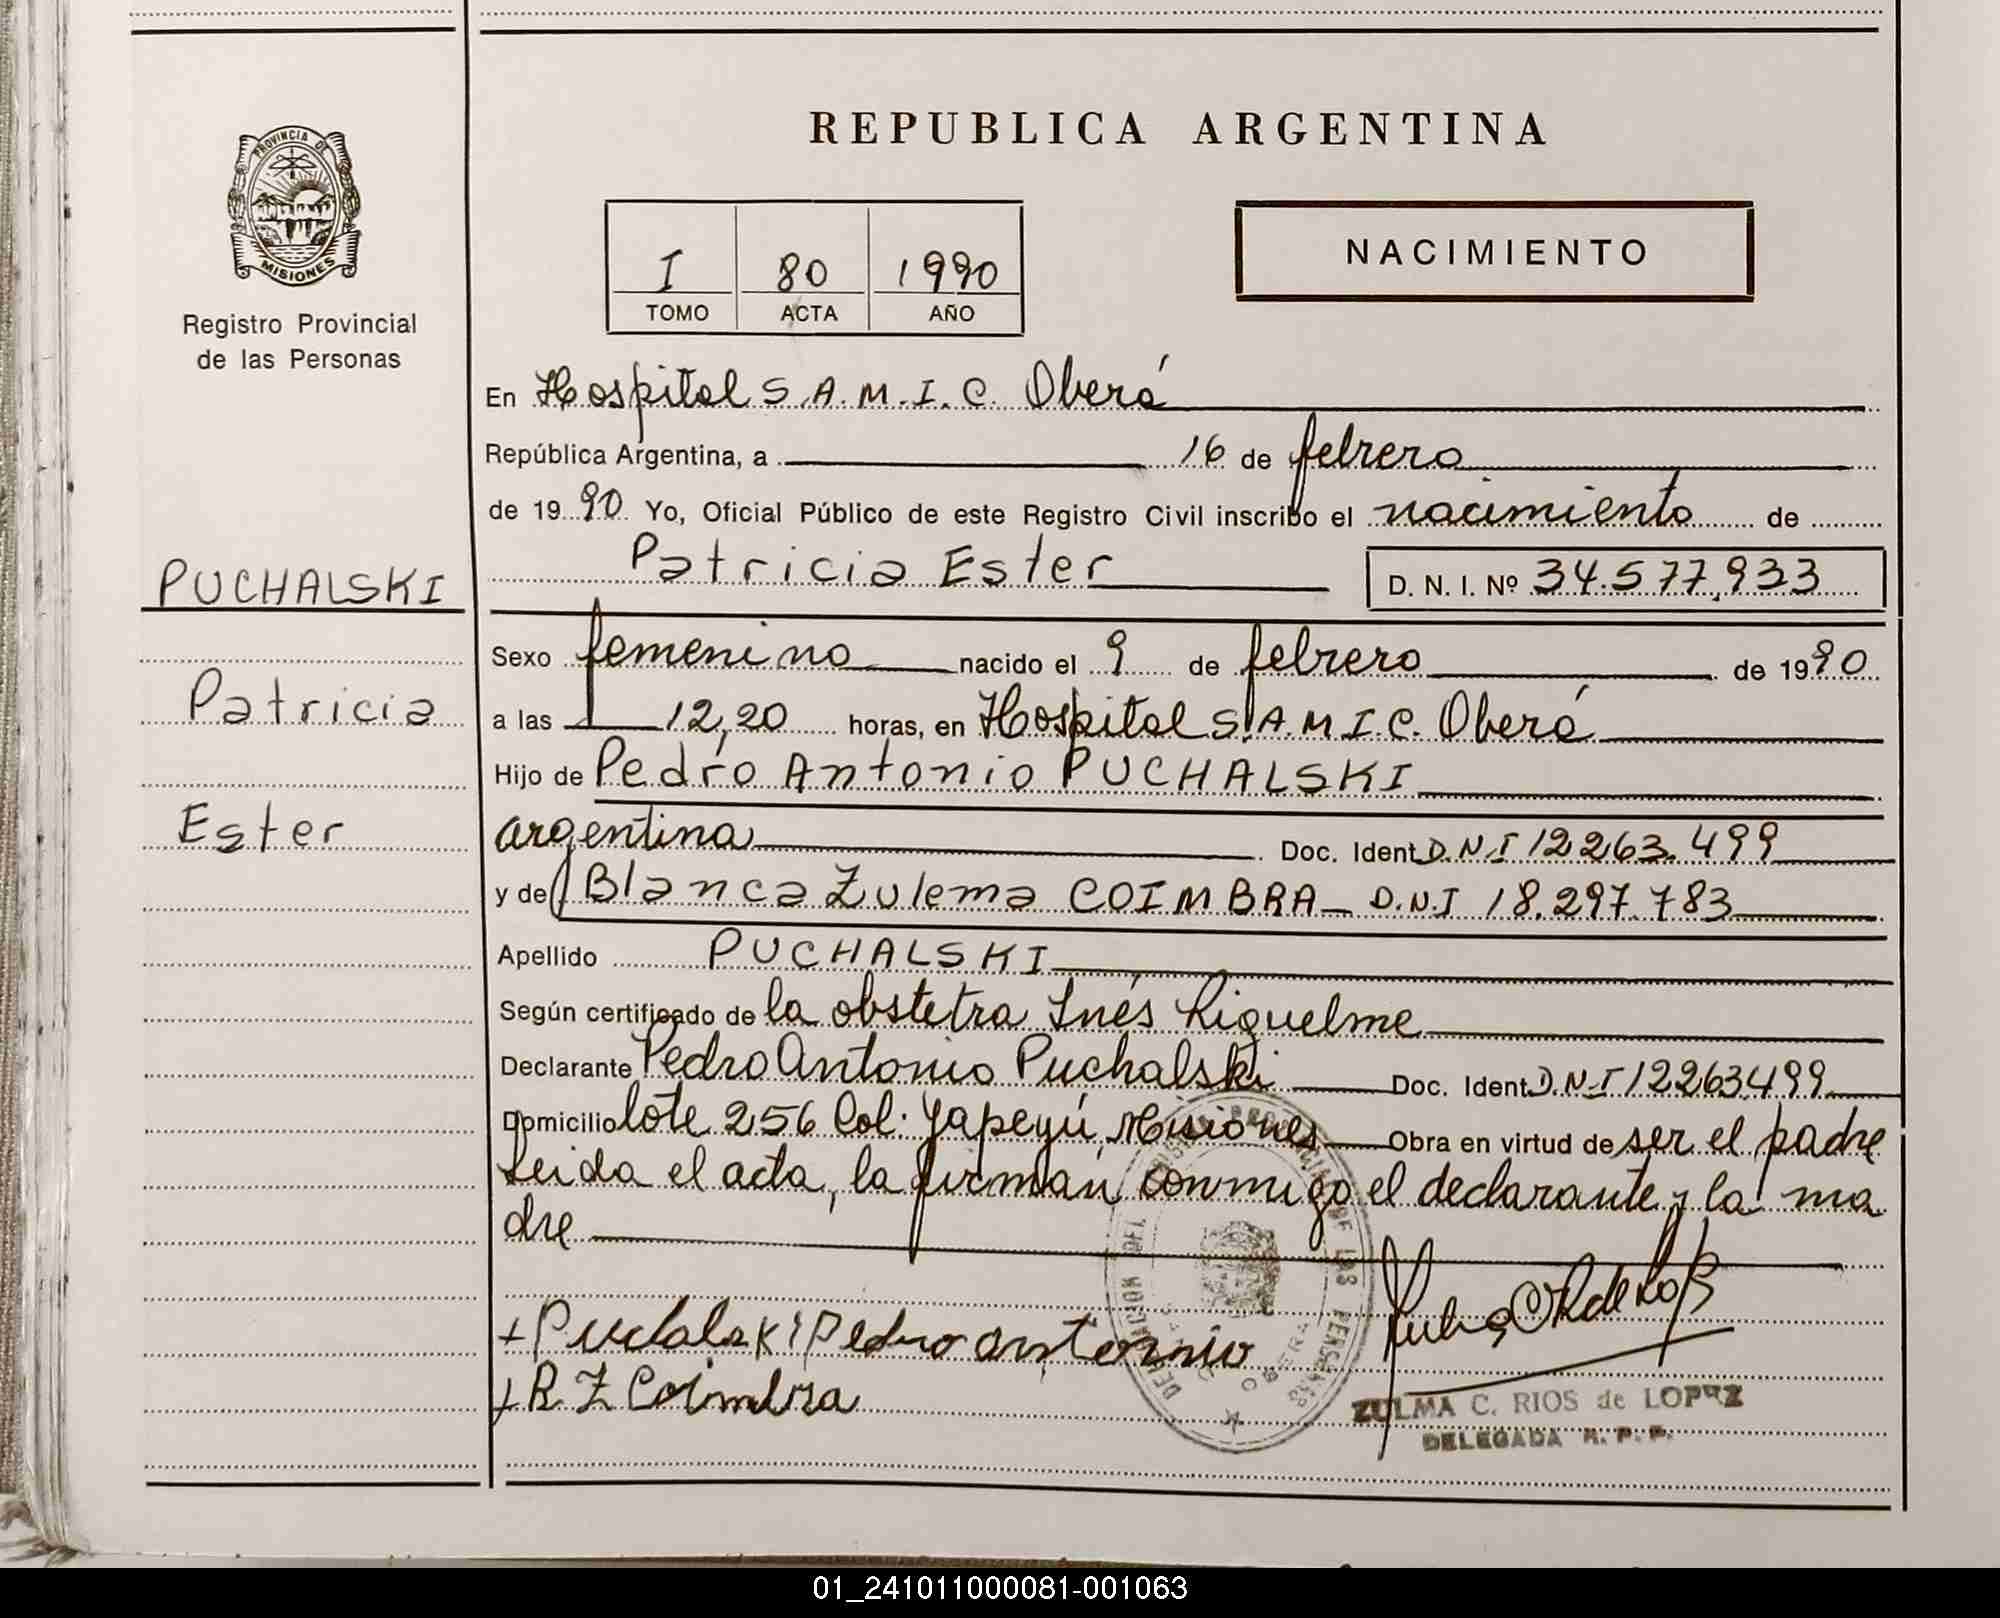 PROVINCIA DE
MISIONES
Registro Provincial
de las Personas
PUCHALSKI
Patricia
Ester
REPUBLICA ARGENTINA
I 80 1990
TOMO ACTA AÑO
NACIMIENTO
En Hospital S.A.M.I.C. Oberá
República Argentina, a 16 de febrero
de 1990 Yo, Oficial Público de este Registro Civil inscribo el nacimiento de
Patricia Ester D. N. I. Nº 34.577.933
Sexo femenino nacido el 9 de febrero de 1990
a las 12,20 horas, en Hospital S.A.M.I.C. Oberá
Hijo de Pedro Antonio PUCHALSKI
argentina Doc. Ident. D.N.I 12263.499
y de Blanca Zulema COIMBRA - D.N.I 18.297.783
Apellido PUCHALSKI
Según certificado de la obstetra Inés Riquelme
Declarante Pedro Antonio Puchalski Doc. Ident. D.N.I 12263499
Domicilio lote 256 Col. Yapeyú Misiones Obra en virtud de ser el padre
Leida el acta, la firman conmigo el declarante y la ma
dre
+ Puchalski Pedro antonio
+ R. Z Coimbra
ZULMA C. RIOS de LOPEZ
DELEGADA R. P. P.
01_241011000081-001063